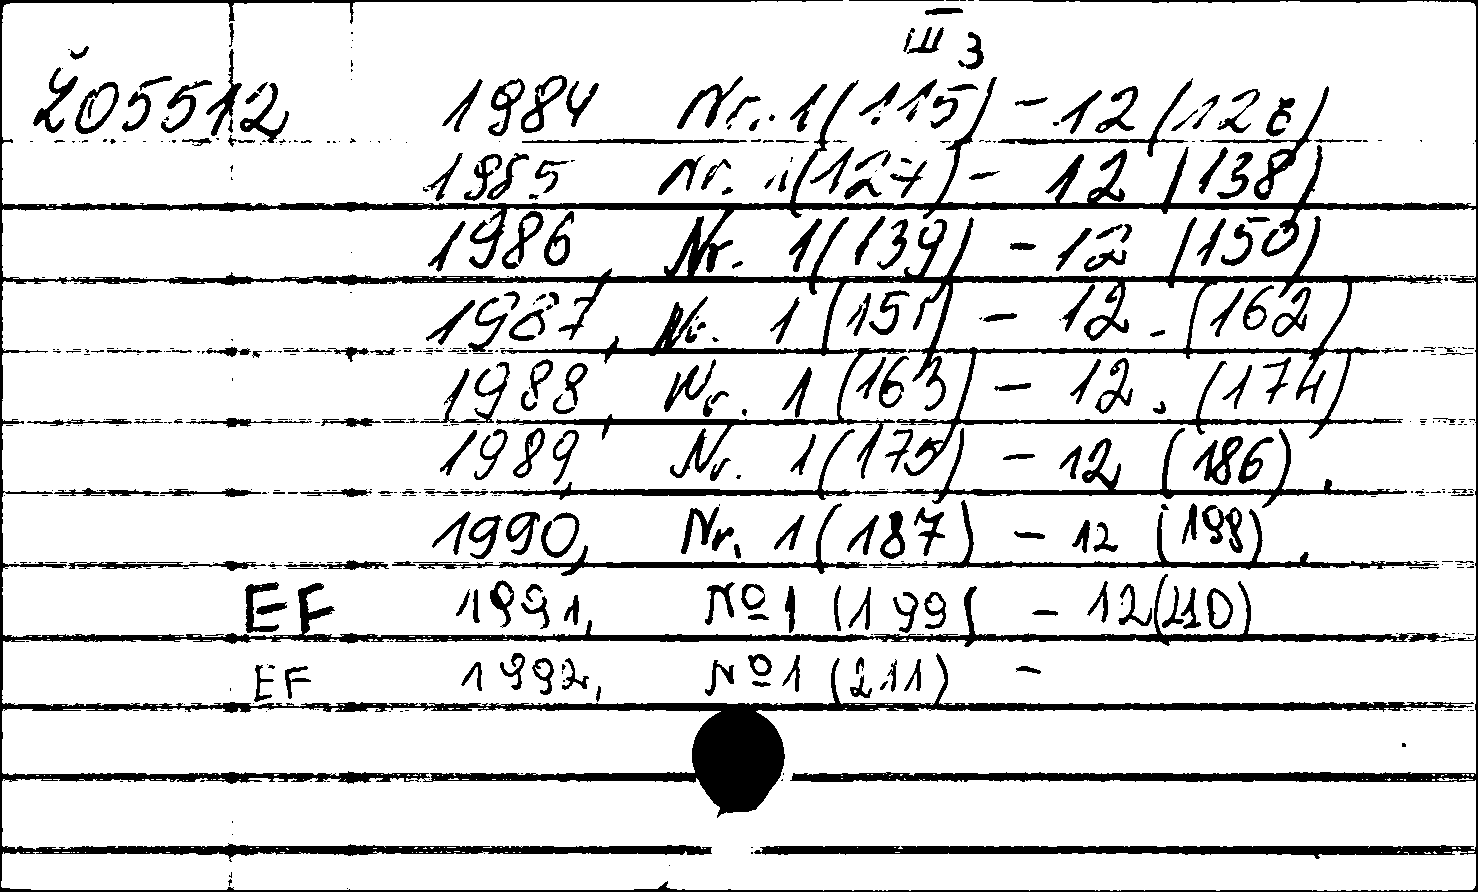 III 3
Ž05512 1984 Nr. 1(115) - 12 (126)
1985 Nr. 1(127) - 12 (138)
1986, Nr. 1(139) - 12 (150)
1987, Nr. 1 (151) - 12. (162)
1988, Nr. 1 (163) - 12. (174)
1989, Nr. 1(175) - 12 (186).
1990, Nr. 1(187) - 12 (198).
EF 1991, Nº1 (199) - 12(210)
EF 1992, Nº1 (211) -